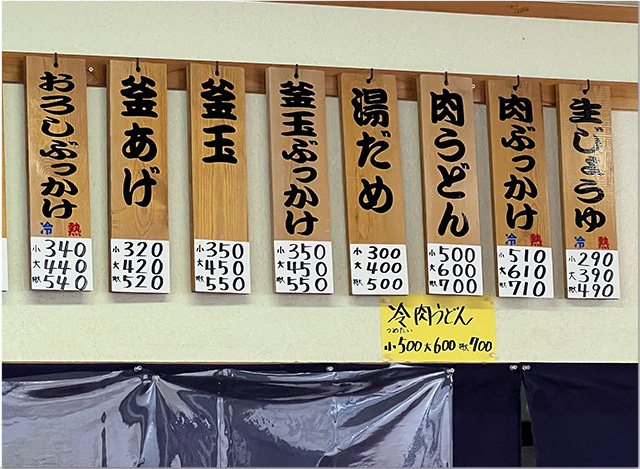 生じょうゆ
冷 熱
小 290
大 390
特 490
肉ぶっかけ
冷 熱
小 510
大 610
特 710
肉うどん
小 500
大 600
特 700
湯だめ
小 300
大 400
特 500
釜玉ぶっかけ
小 350
大 450
特 550
釜玉
小 350
大 450
特 550
釜あげ
小 320
大 420
特 520
おろしぶっかけ
冷 熱
小 340
大 440
特 540
冷肉うどん
つめたい
小500大600特700